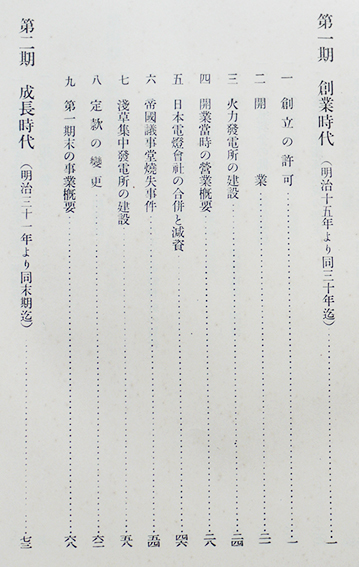 第一期 創業時代（明治十五年より同三十年迄）……一
一 創立の許可……一
二 開業……二一
三 火力發電所の建設……二四
四 開業當時の營業概要……二八
五 日本電燈會社の合併と減資……四六
六 帝國議事堂燒失事件……五四
七 淺草集中發電所の建設……五八
八 定款の變更……六二
九 第一期末の事業概要……六八
第二期 成長時代（明治三十一年より同末期迄）……七三